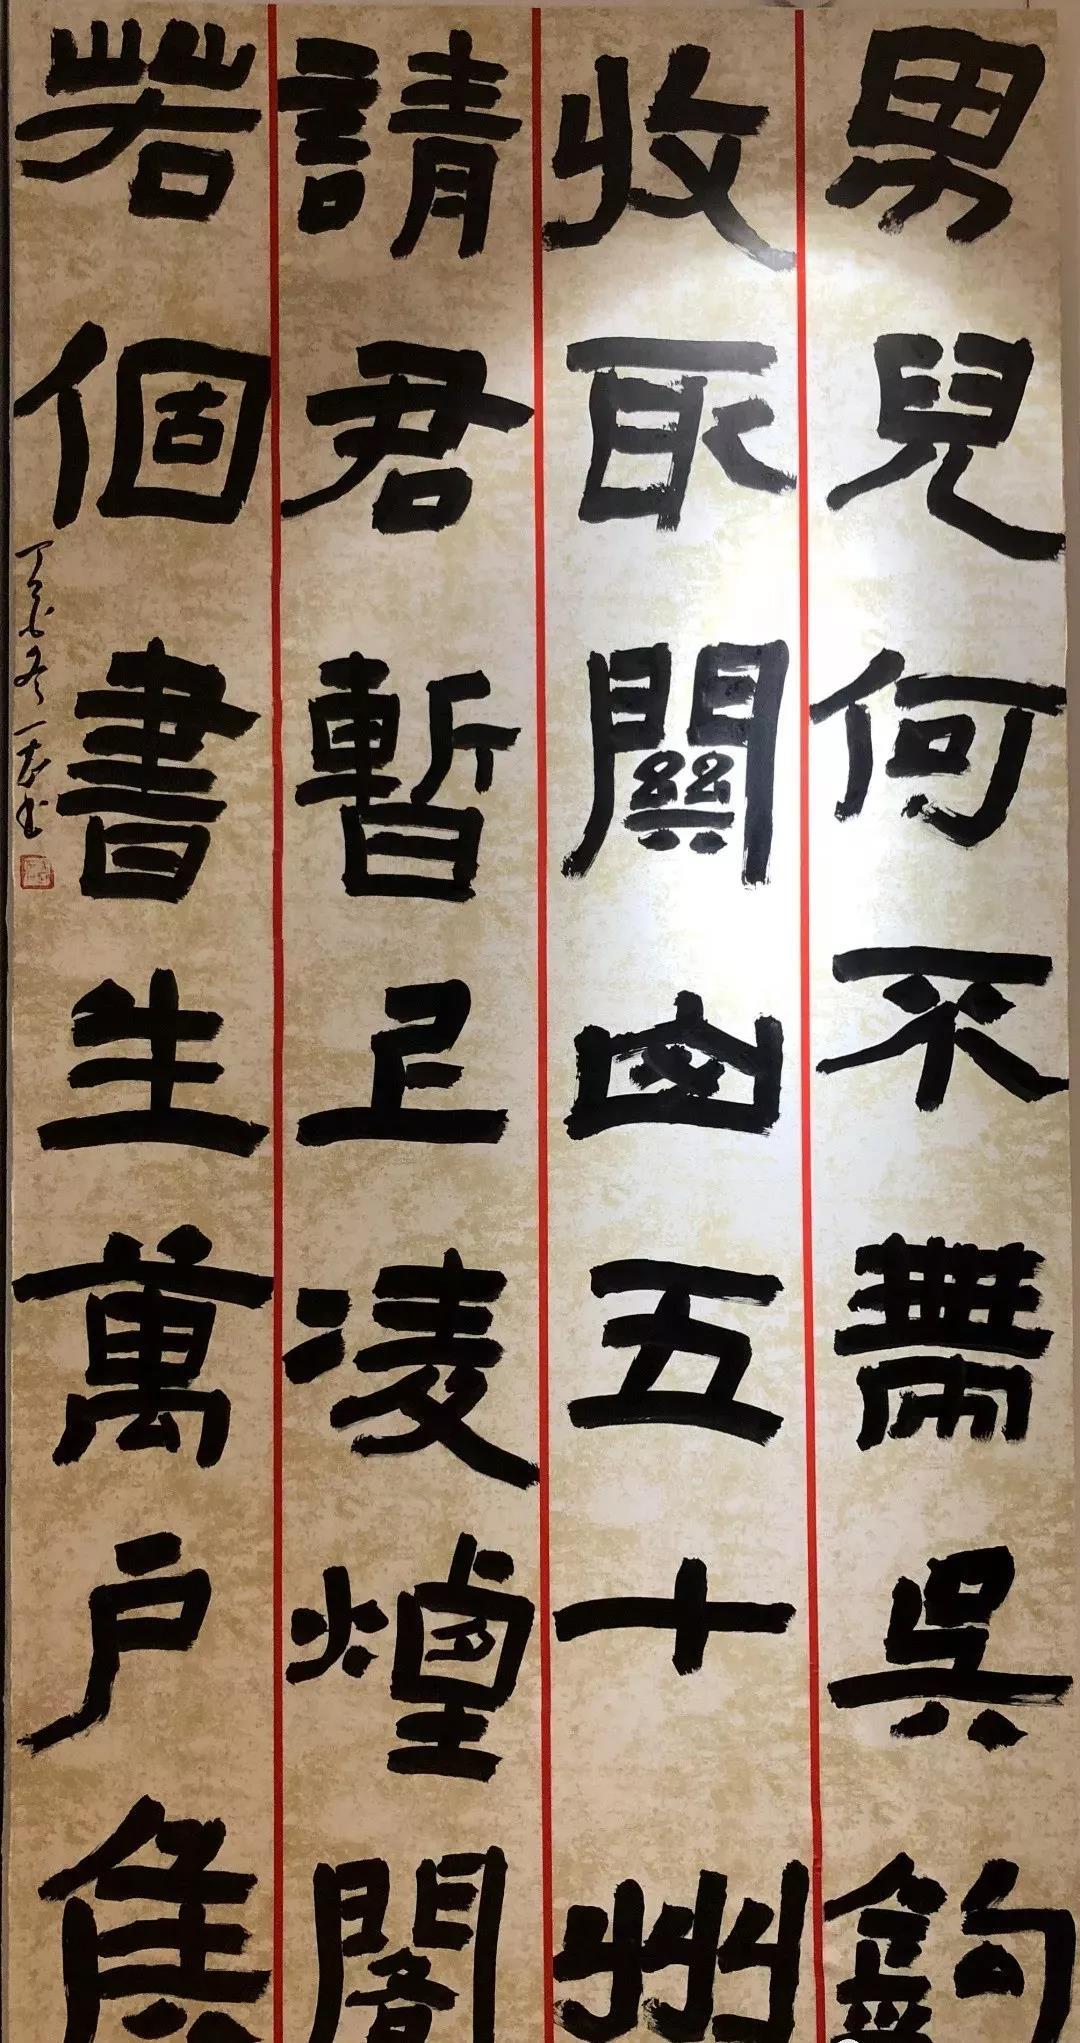 男兒何不帶吳鉤
收取關山五十州
請君暫上凌煙閣
若個書生萬戶侯
丁酉冬一夫书